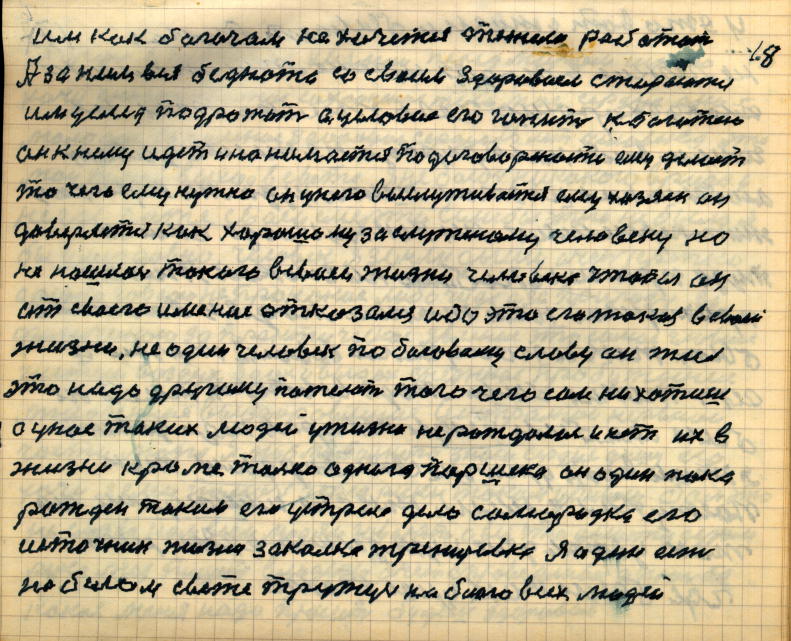 им как богачам не хочется тяжело работат
18
А за ним вся беднота со своим здоровием старается
им угед подрожат а условие его гонит к богатею
он к нему идет и нанимается по договорености ему делает
то чего ему нужно он у него выслуживается ему хозяен он
доверяется как хорошому заслуженому человеку но
не нашлся такого в своей жизни человека чтобы он
от своего имение отказался ибо это его такая в своей
жизни, не один человек по боговому слову он жил
это надо другому пожелат того чего сам не хотиш
а у нас таких людей у жизни не рождалося и нет их в
жизни кроме толко одного Паршека он один пока
рожден таким его устреме дело самородка его
источник жизни закалка тренировка Я один ест
на белом свете тружус на благо всех людей